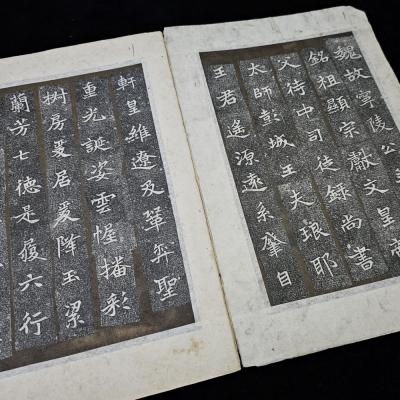 魏故寧陵公主
銘祖顯宗獻文皇帝
父侍中司徒錄尚書
太師彭城王夫琅耶
王君遙源遠系肇自
軒皇維遼及鞏弈聖
重光誕姿雲幄播彩
椒房爰居爰降玉潔
蘭芳七德是履六行